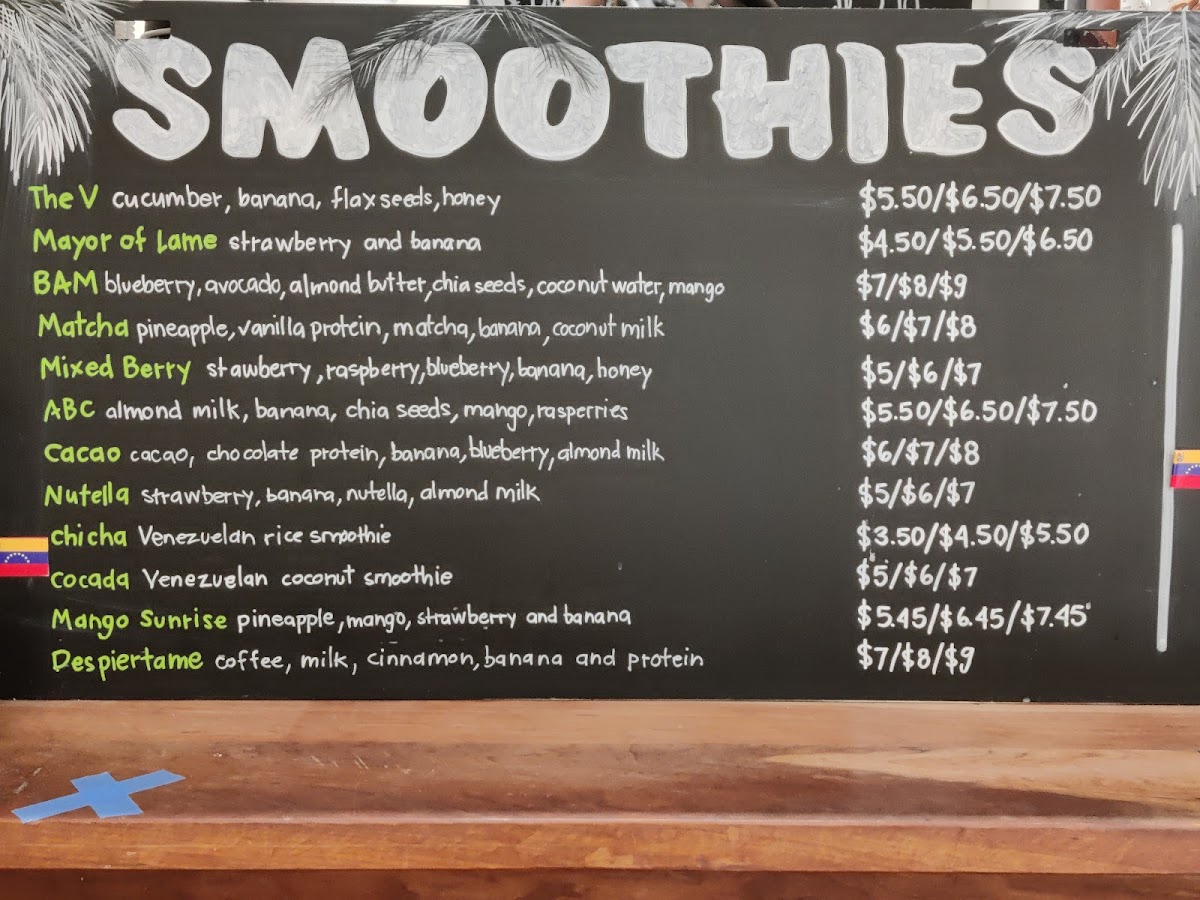 SMOOTHIES
The V cucumber, banana, flaxseeds, honey $5.50/$6.50/$7.50
Mayor of Lame strawberry and banana $4.50/$5.50/$6.50
BAM blueberry, avocado, almond butter, chia seeds, coconut water, mango $7/$8/$9
Matcha pineapple, vanilla protein, matcha, banana, coconut milk $6/$7/$8
Mixed Berry stawberry, raspberry, blueberry, banana, honey $5/$6/$7
ABC almond milk, banana, chia seeds, mango, rasperries $5.50/$6.50/$7.50
Cacao cacao, chocolate protein, banana, blueberry, almond milk $6/$7/$8
Nutella strawberry, banana, nutella, almond milk $5/$6/$7
chicha Venezuelan rice smoothie $3.50/$4.50/$5.50
cocada Venezuelan coconut smoothie $5/$6/$7
Mango Sunrise pineapple, mango, strawberry and banana $5.45/$6.45/$7.45
Despiertame coffee, milk, cinnamon, banana and protein $7/$8/$9